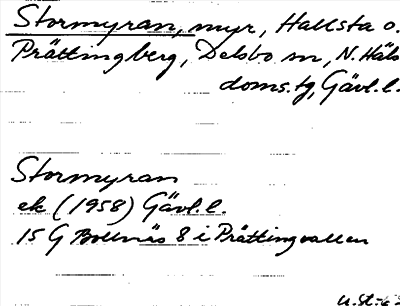 Stormyran, myr, Hallsta o.
Prättingberg, Delsbo sn, N. Häls
doms.tg, Gävl.l.
Stormyran
ek (1958) Gävl.l.
15 G Bollnäs 8 i Prättingvallen